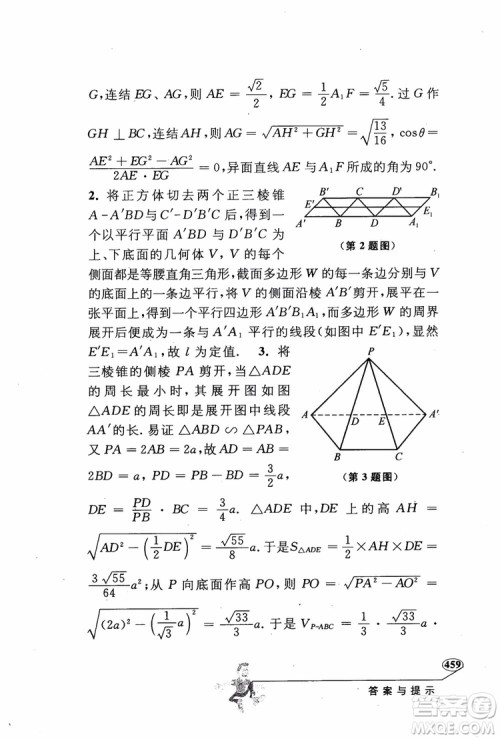 G,连结 EG、AG,则 AE = √2/2, EG = 1/2 A₁F = √5/4. 过 G 作
GH ⊥ BC,连结 AH,则 AG = √(AH² + GH²) = √(13/16), cosθ =
(AE² + EG² − AG²)/(2AE · EG) = 0,异面直线 AE 与 A₁F 所成的角为 90°.
2. 将正方体切去两个正三棱锥
A-A′BD 与 C′-D′B′C 后,得到一
个以平行平面 A′BD 与 D′B′C 为
上、下底面的几何体 V,V 的每个
B′ C D′ B₁
E′ E₁
A′ B D A₁
(第 2 题图)
侧面都是等腰直角三角形,截面多边形 W 的每一条边分别与 V
的底面上的一条边平行,将 V 的侧面沿棱 A′B′剪开,展平在一
张平面上,得到一个▱A′B′B₁A₁,而多边形 W 的周界
展开后便成为一条与 A′A₁平行的线段(如图中 E′E₁),显然
E′E₁ = A′A₁,故 l 为定值. 3. 将
三棱锥的侧棱 PA 剪开,当△ADE
的周长最小时,其展开图如图
△ADE 的周长即是展开图中线段
AA′的长. 易证△ABD ∽ △PAB,
又 PA = 2AB = 2a,故 AD = AB =
2BD = a, PD = PB − BD = 3/2 a,
P
A D E A′
B C
(第 3 题图)
DE = PD/PB · BC = 3/4 a. △ADE 中,DE 上的高 AH =
√(AD² − (1/2 DE)²) = √55/8 a. 于是 S△ADE = 1/2 DE · AH =
3√55/64 a²;从 P 向底面作高 PO,则 PO = √(PA² − AO²) =
√((2a)² − (1/√3 a)²) = √33/3 a. 于是 V_P-ABC = 1/3 · √33/3 a ·
459
答案与提示